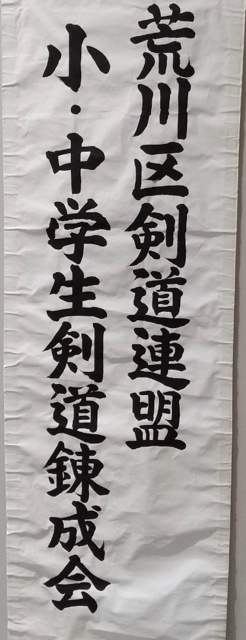 荒川区剣道連盟
小・中学生剣道錬成会